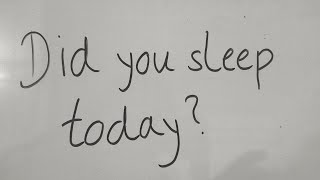 Did you sleep
today?